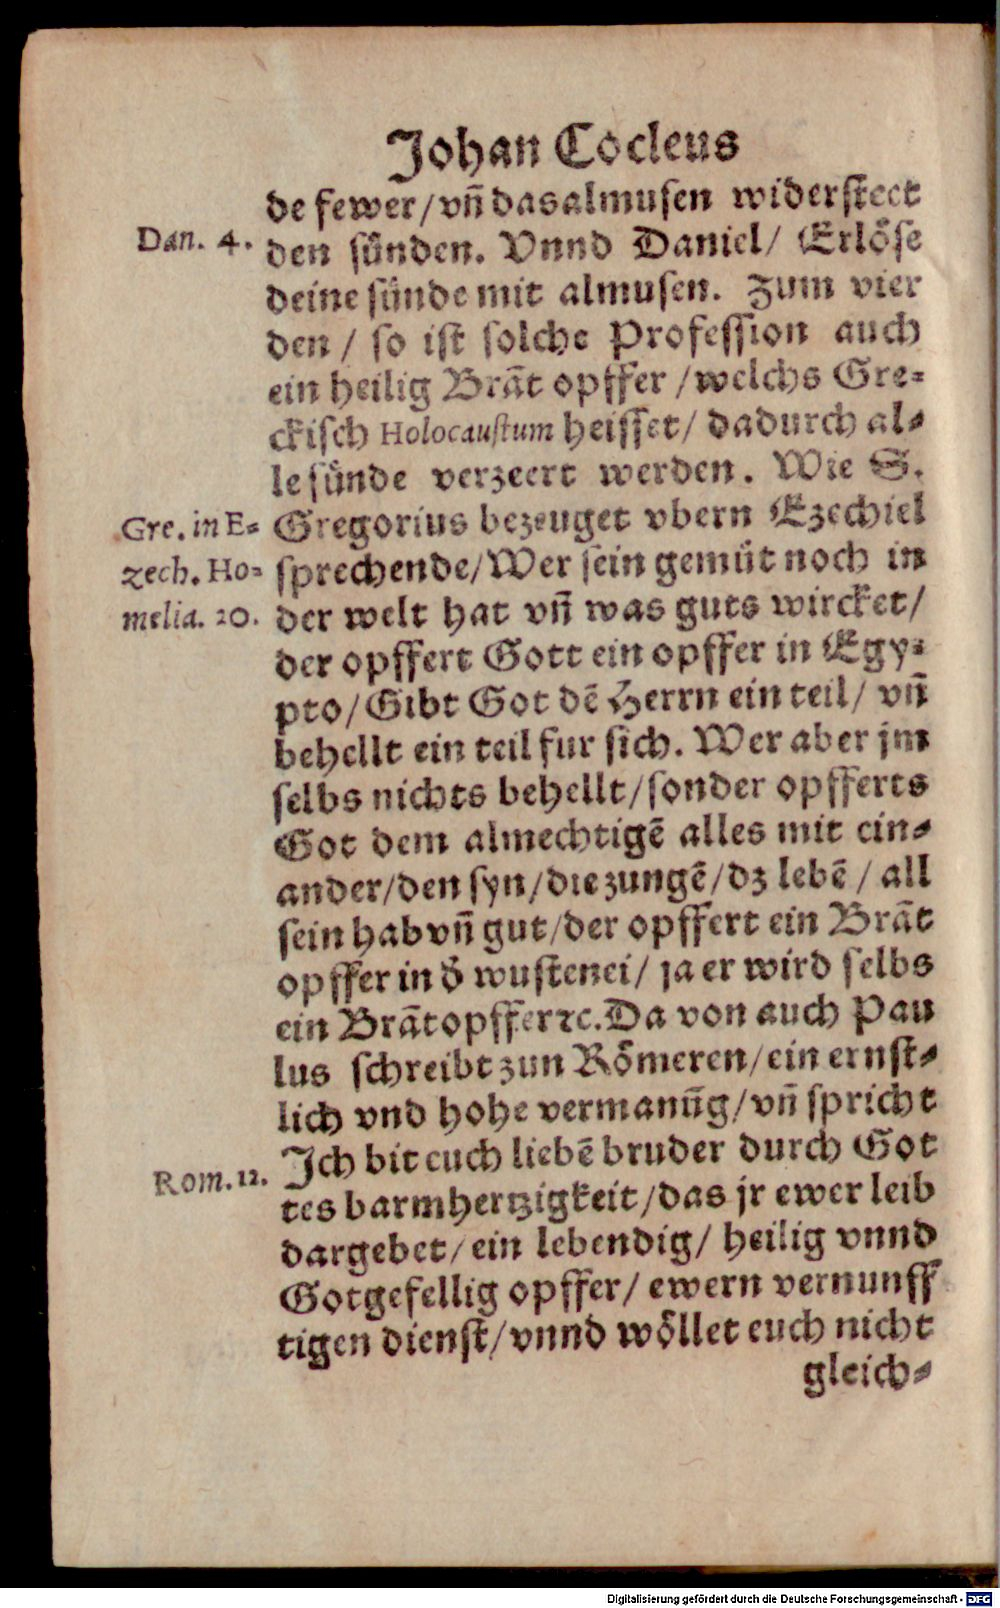 Johan Cocleus
de fewer/ vn̄ das almusen widersteet
Dan. 4.
den sünden. Vnnd Daniel/ Erlöse
deine sünde mit almusen. Zum vier
den/ so ist solche Profession auch
ein heilig Brāt opffer/ welchs Gre⸗
ckisch Holocaustum heisset/ dadurch al⸗
le sünde verzeert werden. Wie S.
Gre. in E⸗
zech. Ho⸗
melia. 20.
Gregorius bezeuget vbern Ezechiel
sprechende/ Wer sein gemüt noch in
der welt hat vn̄ was guts wircket/
der opffert Gott ein opffer in Egy⸗
pto/ Gibt Got dē Herrn ein teil/ vn̄
behellt ein teil fur sich. Wer aber jm
selbs nichts behellt/ sonder opfferts
Got dem almechtigē alles mit ein⸗
ander/ den syn/ die zungē/ dz lebē/ all
sein hab vn̄ gut/ der opffert ein Brāt
opffer in d̄ wustenei/ ja er wird selbs
ein Brātopffer ꝛc. Da von auch Pau
lus schreibt zun Römeren/ ein ernst⸗
lich vnd hohe vermanūg/ vn̄ spricht
Rom. 12.
Ich bit euch liebē bruder durch Got
tes barmhertzigkeit/ das jr ewer leib
dargebet/ ein lebendig/ heilig vnnd
Gotgefellig opffer/ ewern vernunff
tigen dienst/ vnnd wöllet euch nicht
gleich⸗
Digitalisierung gefördert durch die Deutsche Forschungsgemeinschaft - DFG